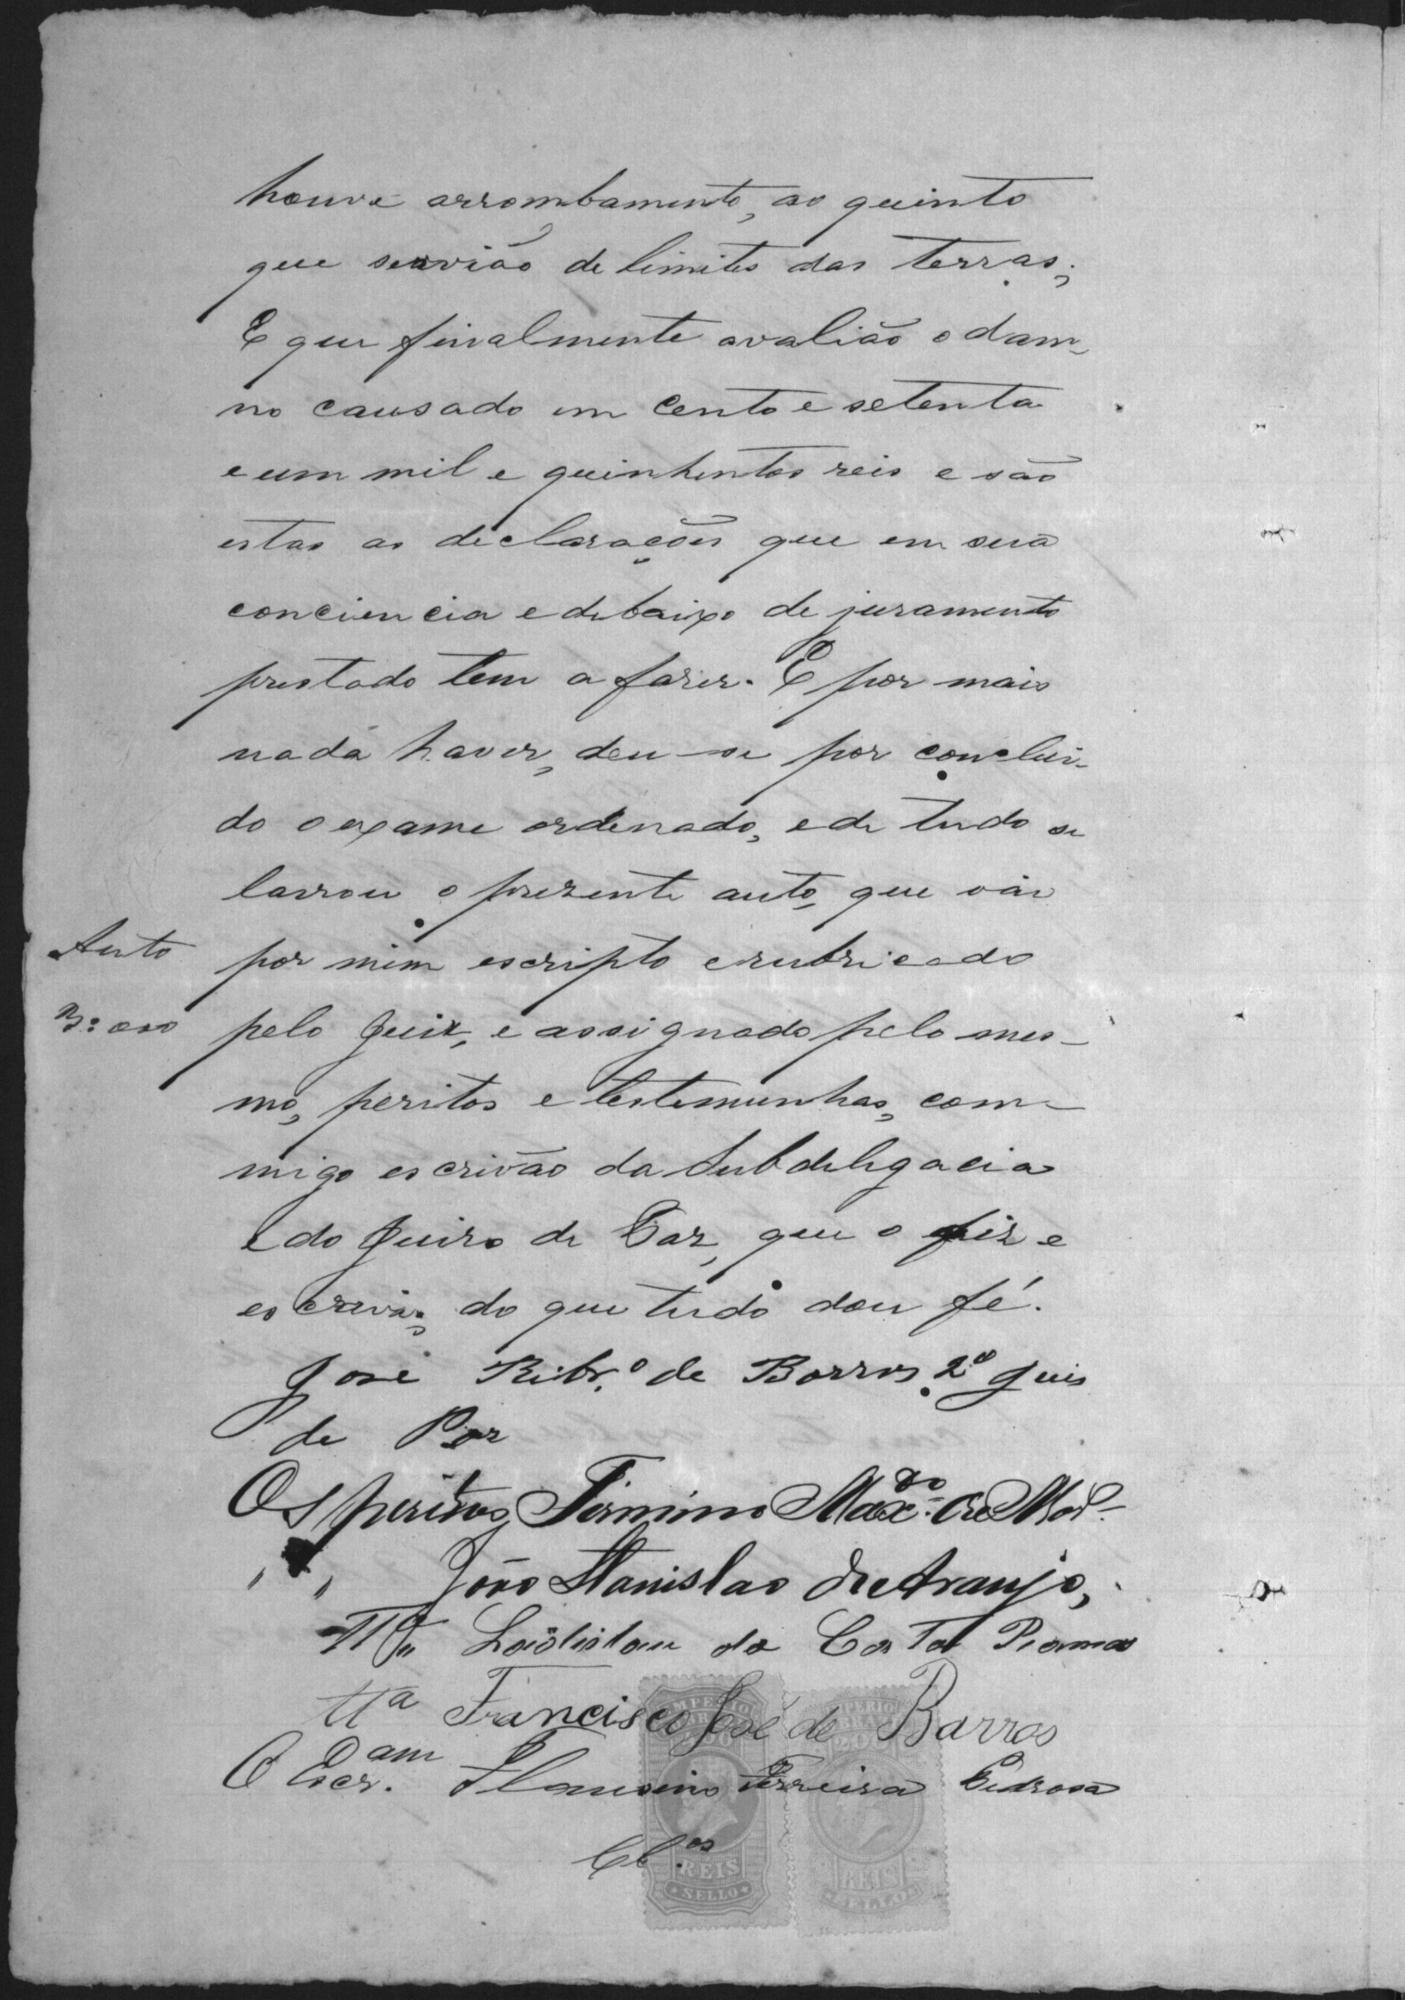 houve arrombamento, ao quinto
que servião de limites das terras;
E que finalmente avalião o dam-
no causado em cento e setenta
e um mil e quinhentos reis e são
estas as declarações que em sua
conciencia e debaixo de juramento
prestado tem a fazer. E por mais
nada haver, deu-se por conclui-
do o exame ordenado, e de tudo se
lavrou o prezente auto, que vai
Auto por mim escripto e rubricado
3:000 pelo Juiz, e assignado pelo mes-
mo, peritos e testemunhas, com-
migo escrivão da Subdelegacia
e do Juizo de Paz, que o fiz e
escrevi; do que tudo dou fé.
José Ribr.º de Barros 2º Juis
de Paz
Os peritos Firmino Max.º de
" " João Stanislao de Araujo,
Ttª Ladislau da Costa
Ttª Francisco José de Barros
O Escr.am Ferreira Pedrosa
IMPERIO
200
REIS
SELLO
IMPERIO
200
REIS
SELLO
Cl.os